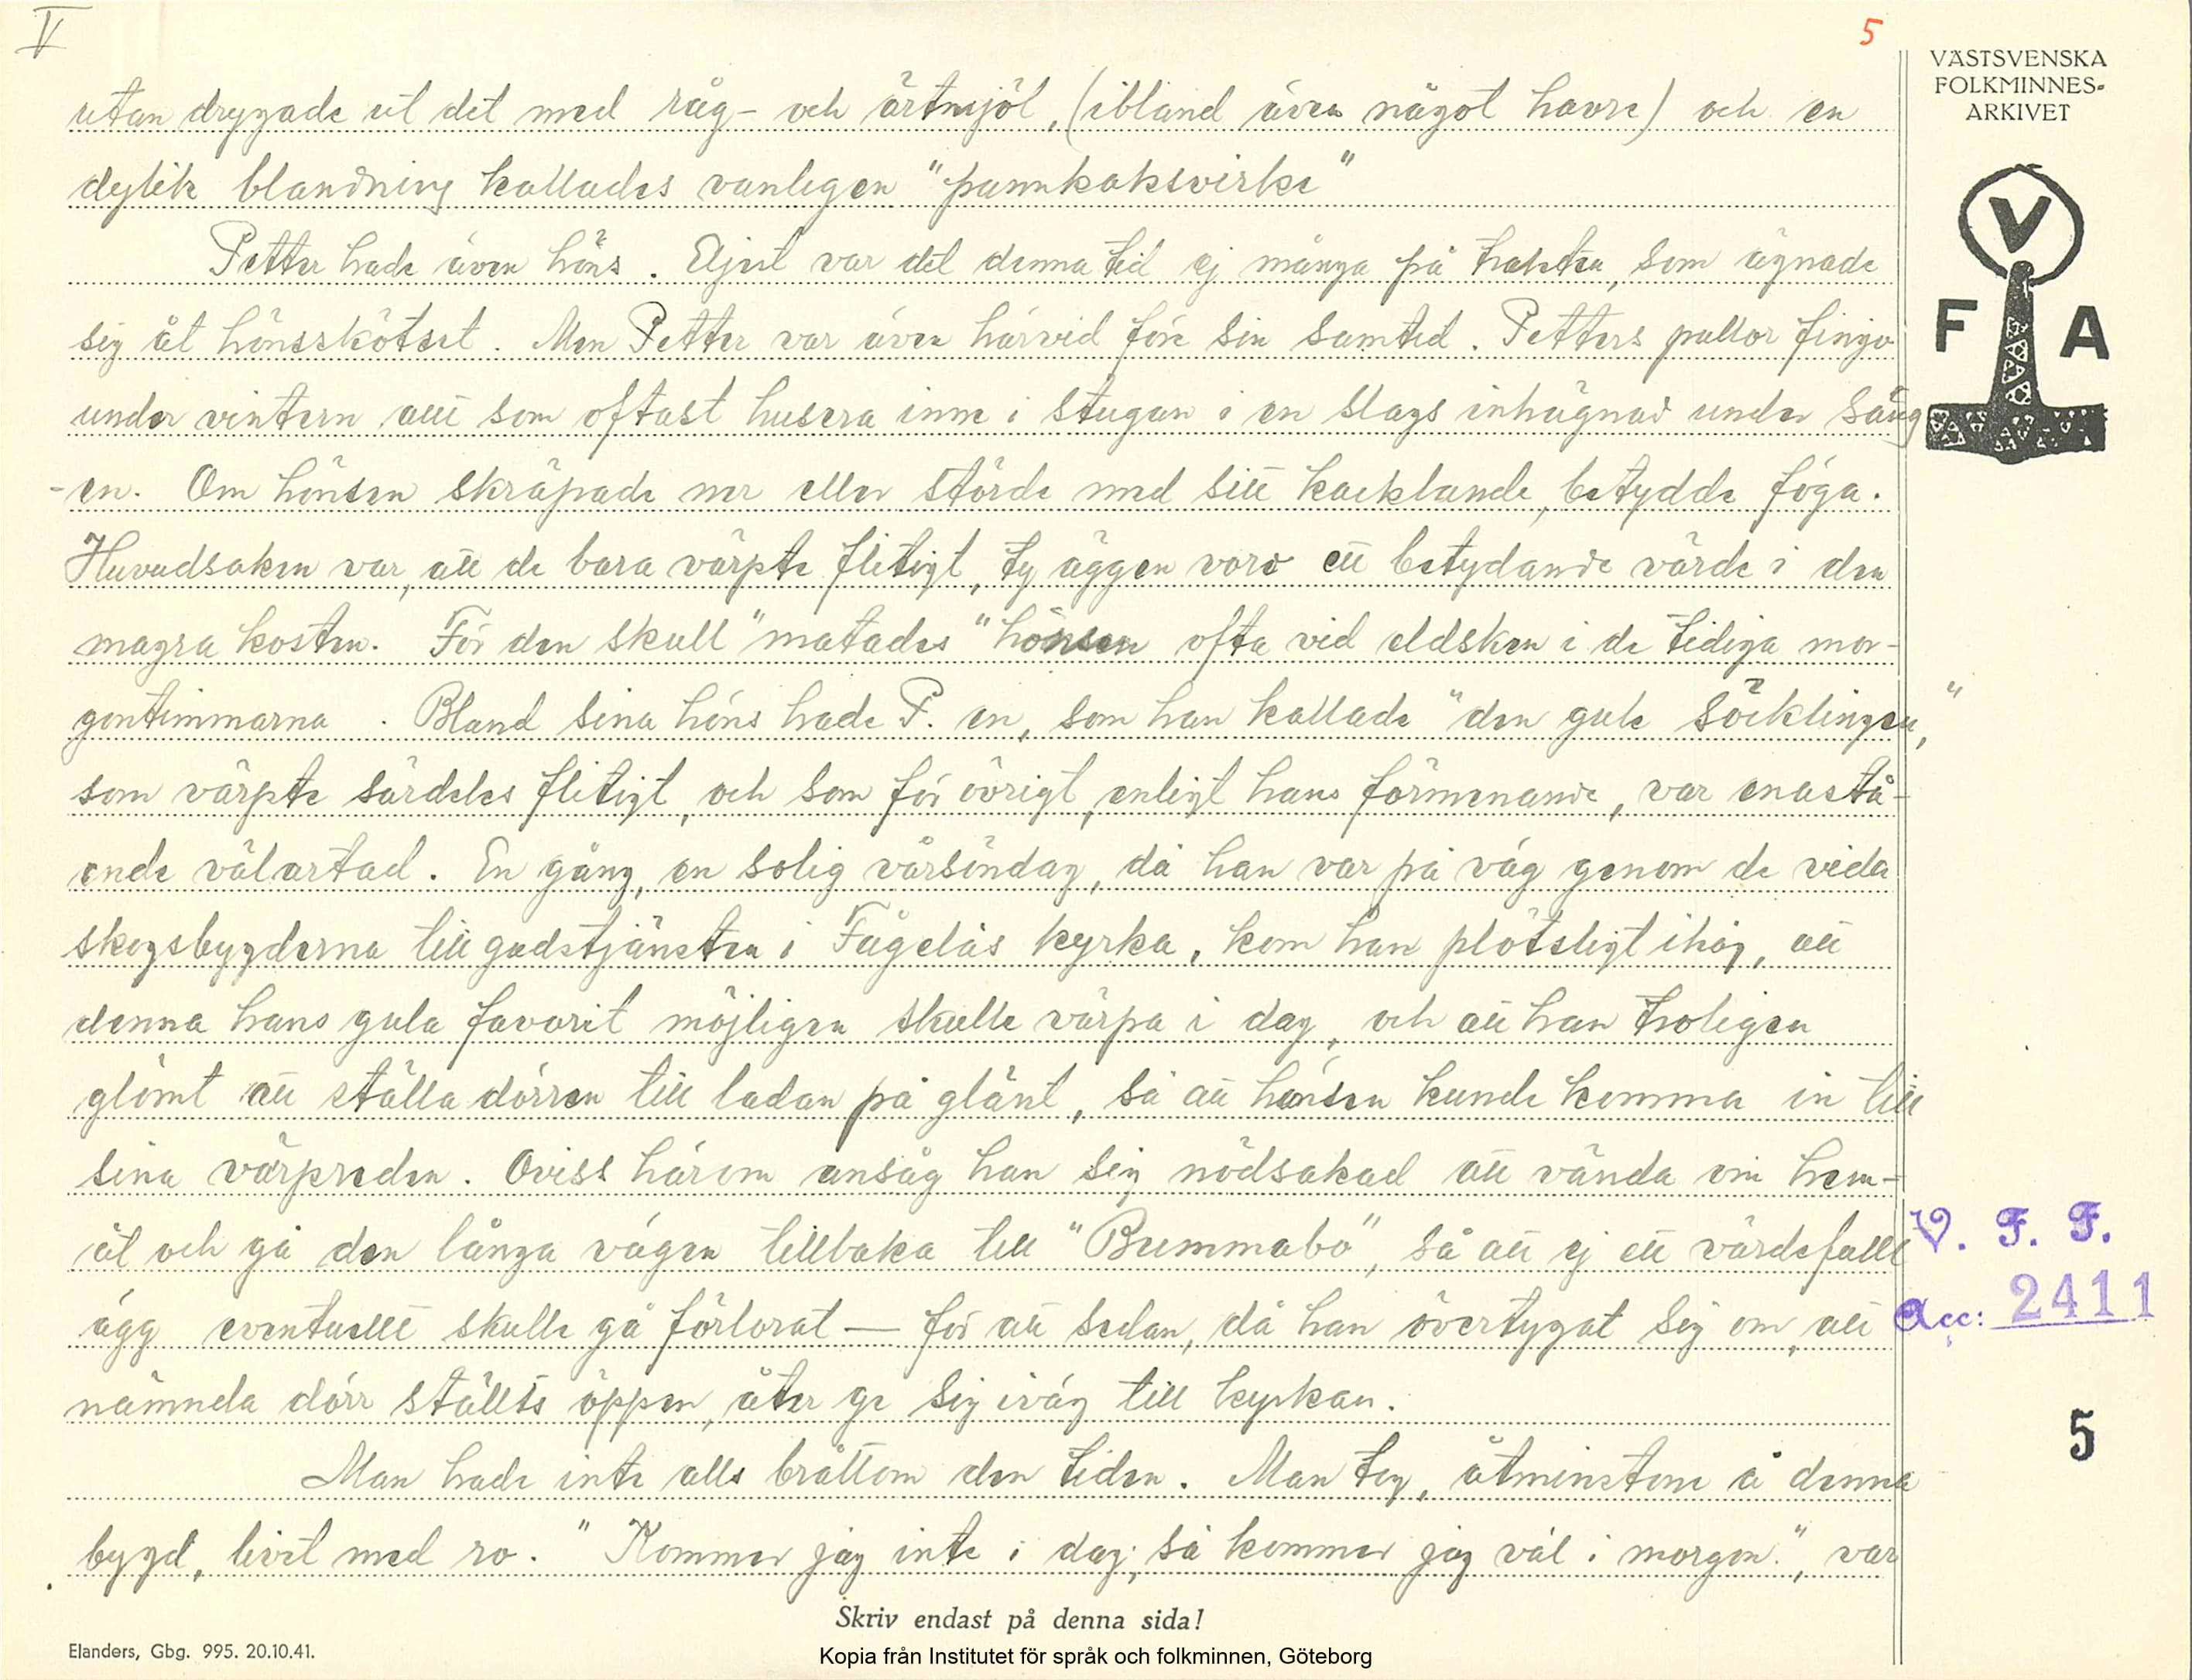 V
5
VÄSTSVENSKA
FOLKMINNES-
ARKIVET
V
F A
utan drygade ut det med råg- och ärtmjöl, (ibland även något havre) och en
dylik blandning kallades vanligen "pannkaksvirke"
Petter hade även höns. Eljest var det denna tid ej många på trakten, som ägnade
sig åt hönsskötsel. Men Petter var även härvid före sin samtid. Petters pullor fingo
under vintern att som oftast husera inne i stugan i en slags inhägnad under säng
-en. Om hönsen skräpade ner eller störde med sitt kacklande, betydde föga.
Huvudsaken var, att de bara värpte flitigt, ty äggen voro ett betydande värde i den
magra kosten. För den skull "matades" hönsen ofta vid eldsken i de tidiga mor-
gontimmarna. Bland sina höns hade P. en, som han kallade "den gule söcklingen,"
som värpte särdeles flitigt, och som för övrigt, enligt hans förmenande, var enastå-
ende välartad. En gång, en solig vårsöndag, då han var på väg genom de vida
skogsbygderna till gudstjänsten i Fågelås kyrka, kom han plötsligt ihåg, att
denna hans gula favorit möjligen skulle värpa i dag, och att han troligen
glömt att ställa dörren till ladan på glänt, så att hönsen kunde komma in till
sina värpreden. Oviss härom ansåg han sig nödsakad att vända om hem-
åt och gå den långa vägen tillbaka till "Bummabo", så att ej ett värdefullt
ägg eventuellt skulle gå förlorat — för att sedan, då han övertygat sig om, att
nämnda dörr ställts öppen, åter ge sig iväg till kyrkan.
Man hade inte alls bråttom den tiden. Man tog, åtminstone å denna
bygd, livet med ro. "Kommer jag inte i dag, så kommer jag väl i morgon.", var
V. F. F.
Acc: 2411
5
Skriv endast på denna sida!
Elanders, Gbg. 995. 20.10.41.
Kopia från Institutet för språk och folkminnen, Göteborg